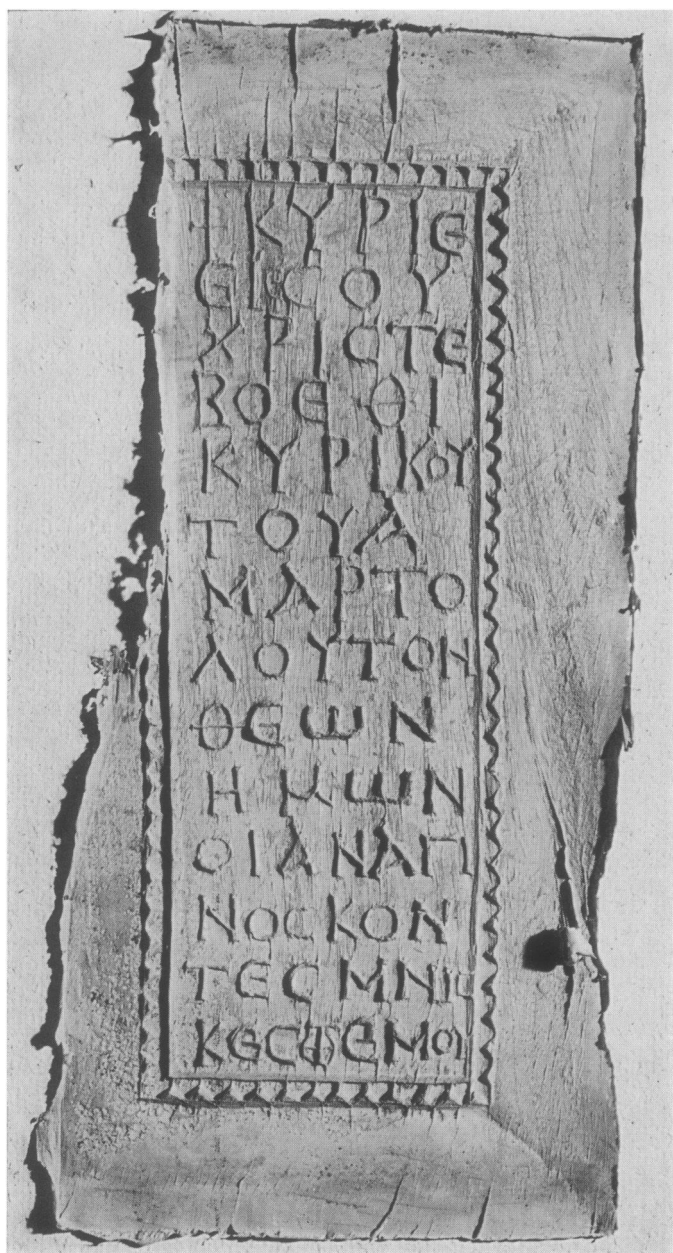 + ΚΥΡΙΕ
ΕΙΕϹΟΥ
ΧΡΙϹΤΕ
ΒΟΕΘΙ
ΚΥΡΙΚΟΥ
ΤΟΥΑ
ΜΑΡΤΟ
ΛΟΥΤΟΗ
ΘΕΩΝ
ΗΜΩΝ
ΟΙΑΝΑΓΙ
ΝΟϹΚΟΝ
ΤΕϹΜΝΙϹ
ΚΕϹΘΕΜΟΥ